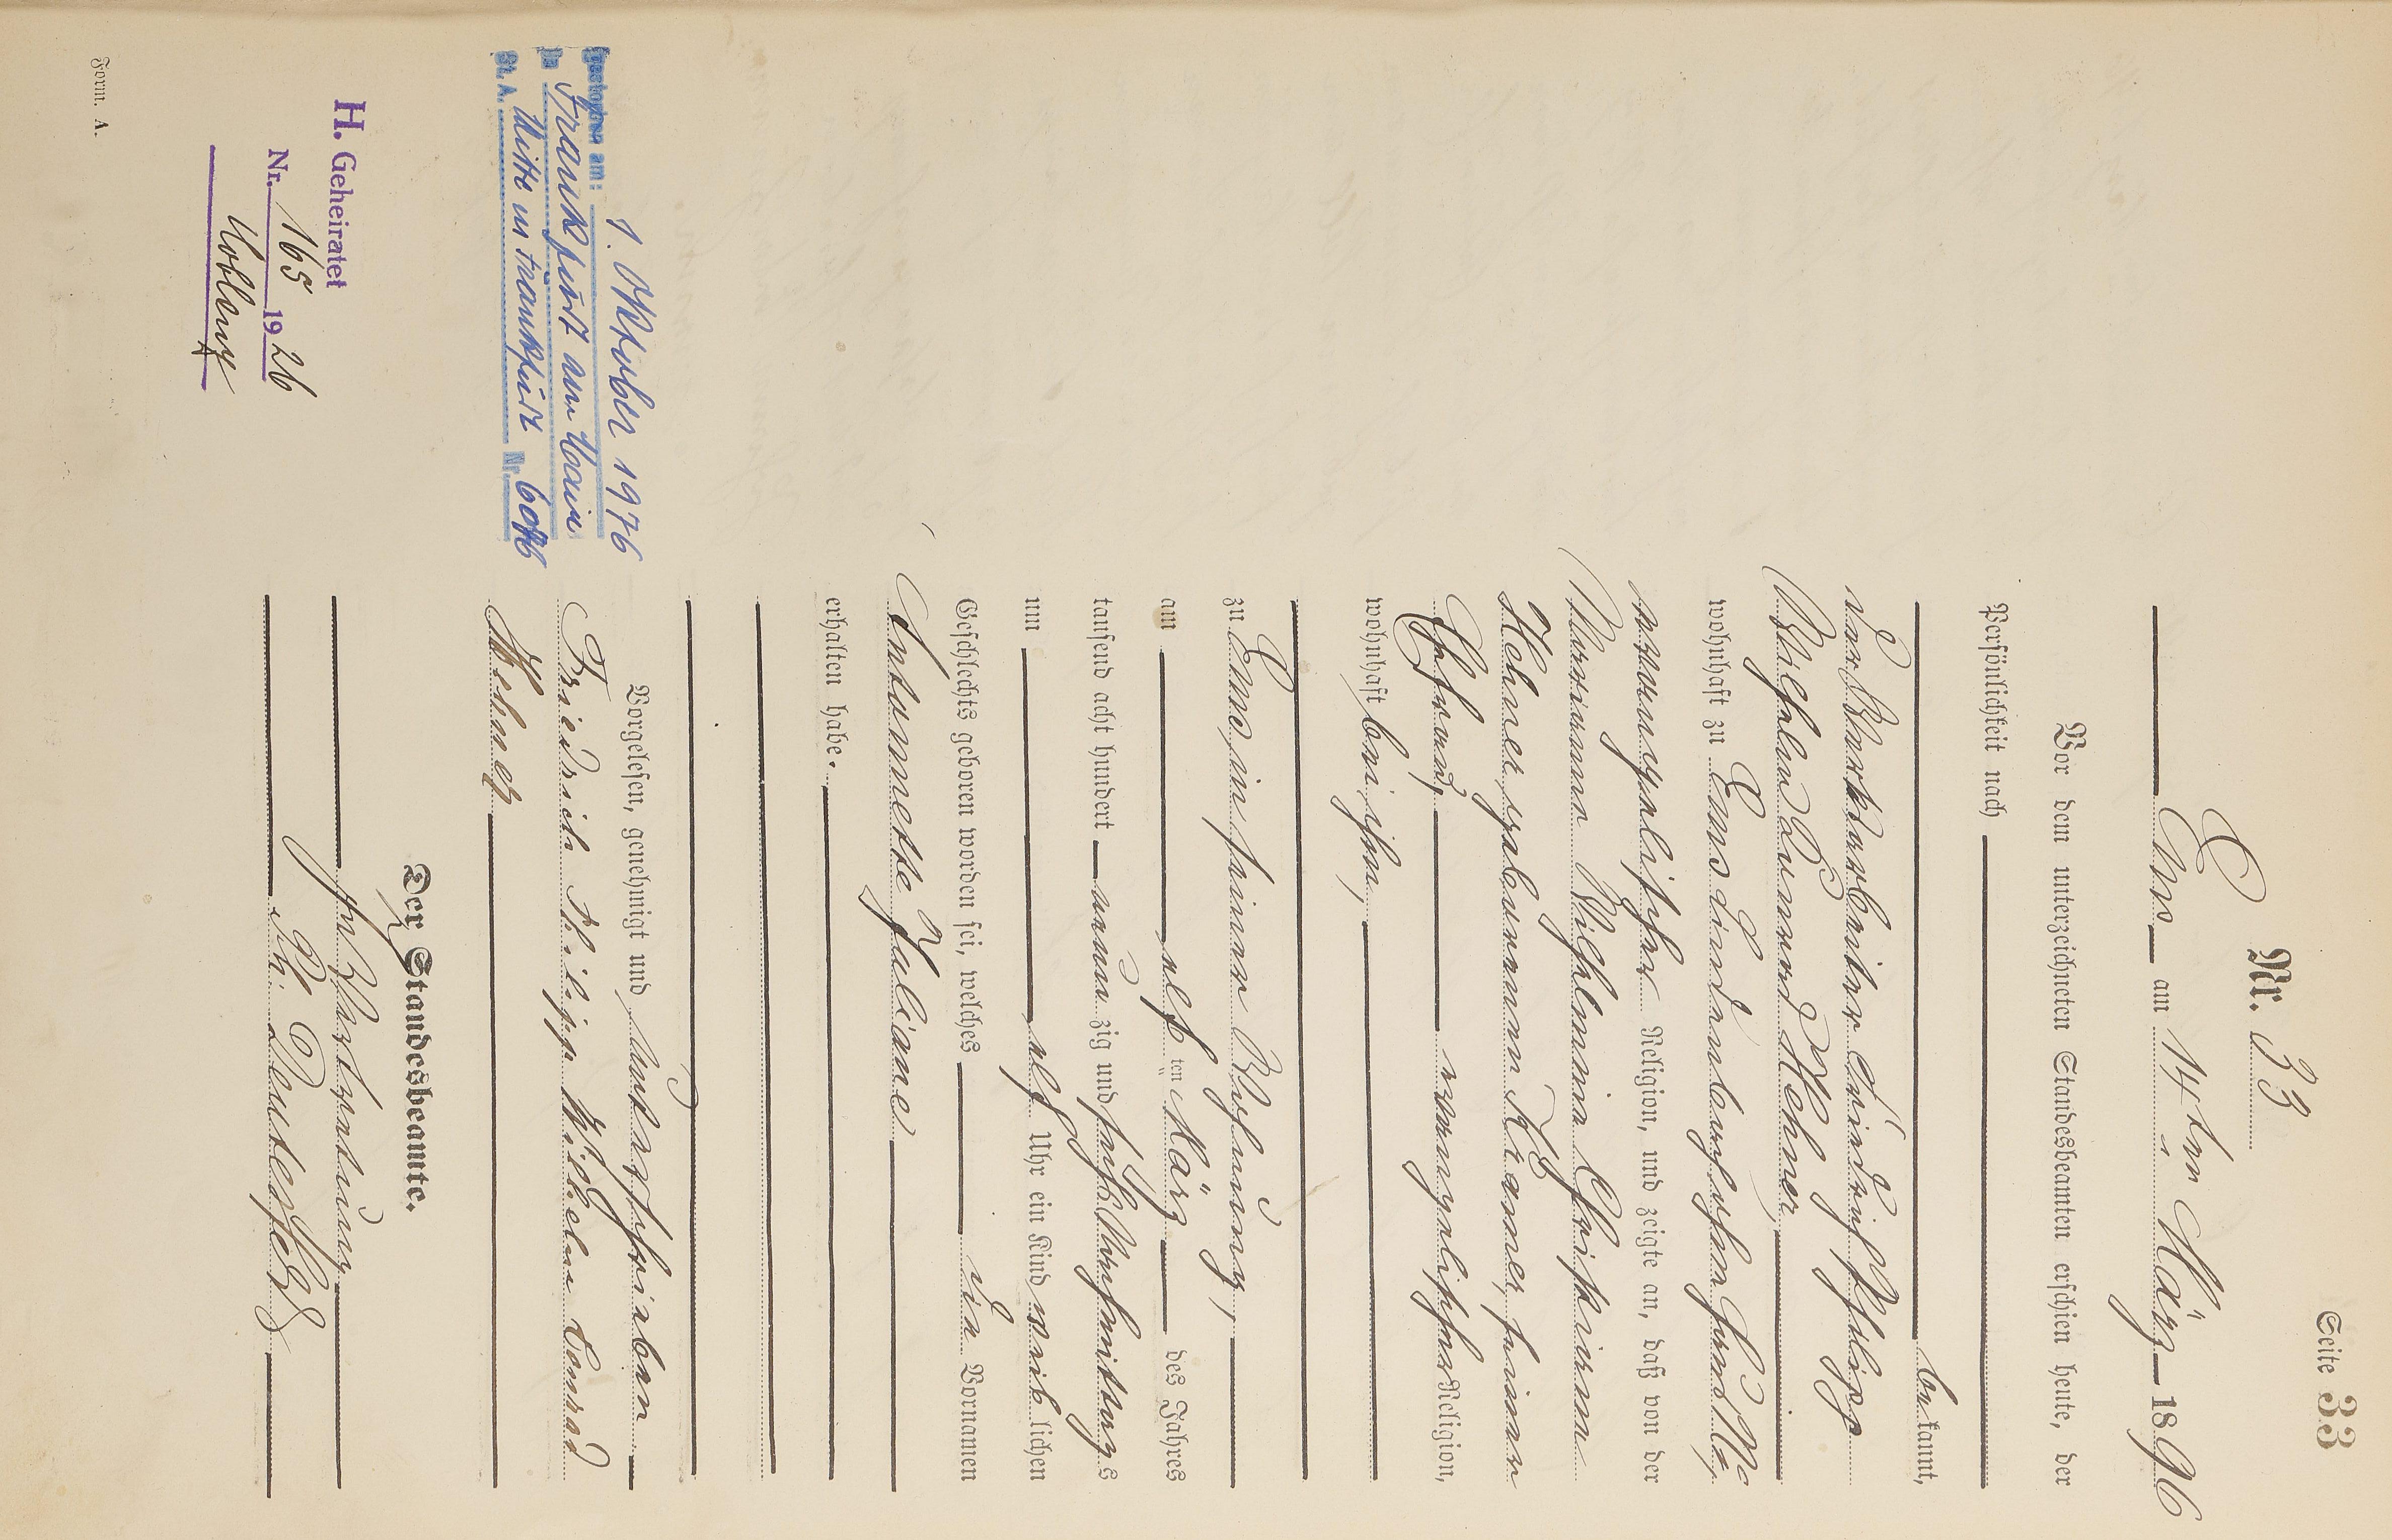 Seite 33
Nr. 33
Ems am 14ten März 1896
Vor dem unterzeichneten Standesbeamten erschien heute, der
Persönlichkeit nach
bekannt,
der Parkarbeiter Friedrich Philipp
Wilhelm Conrad Hehner,
wohnhaft zu Ems
evangelischer Religion, und zeigte an, daß von der
Mariane Wilhelmine Christiane
Hehner, geborenen Kramer, seiner
Ehefrau, evangelischer Religion,
wohnhaft bei ihm,
zu Ems, in seiner Wohnung,
am elften März des Jahres
tausend acht hundert neunzig und sechs Vormittags
um elf Uhr ein Kind weiblichen
Geschlechts geboren worden sei, welches ein Vornamen
Antonnette Juliane
erhalten habe.
Vorgelesen, genehmigt und unterschrieben
Friedrich Philipp Wilhelm Conrad
Hehner
Der Standesbeamte.
In Vertretung
Gestorben am: 1. Oktober 1976
in Frankfurt am Main
St. A. Mitte in Frankfurt Nr.
H. Geheiratet
Nr. 165 1926
Koblenz
Form. A.